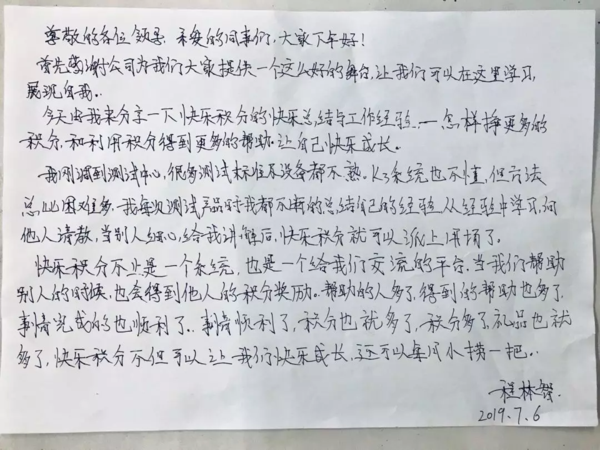 尊敬的各位领导、亲爱的同事们,大家下午好!
首先感谢公司为我们大家提供一个这么好的舞台,让我们可以在这里学习,
展现自我。
今天由我来分享一下快乐积分的快乐总结与工作经验,一怎样挣更多的
积分,和利用积分得到更多的帮助,让自己快乐成长。
我刚调到测试中心,很多测试标准及设备都不熟。K3系统也不懂,但方法
总比困难多,我每次测试产品时我都不断的总结自己的经验,从经验中学习,向
他人请教,当别人细心,给我讲解后,快乐积分就可以派上用场了。
快乐积分不止是一个系统,也是一个给我们交流的平台。当我们帮助
别人的时候,也会得到他人的积分奖励。帮助的人多了,得到的帮助也多了,
事情完成的也顺利了。事情顺利了,积分也就多了,积分多了,礼品也就
多了,快乐积分不但可以让我们快乐成长,还可以每月小捞一把。
程林
2019.7.6